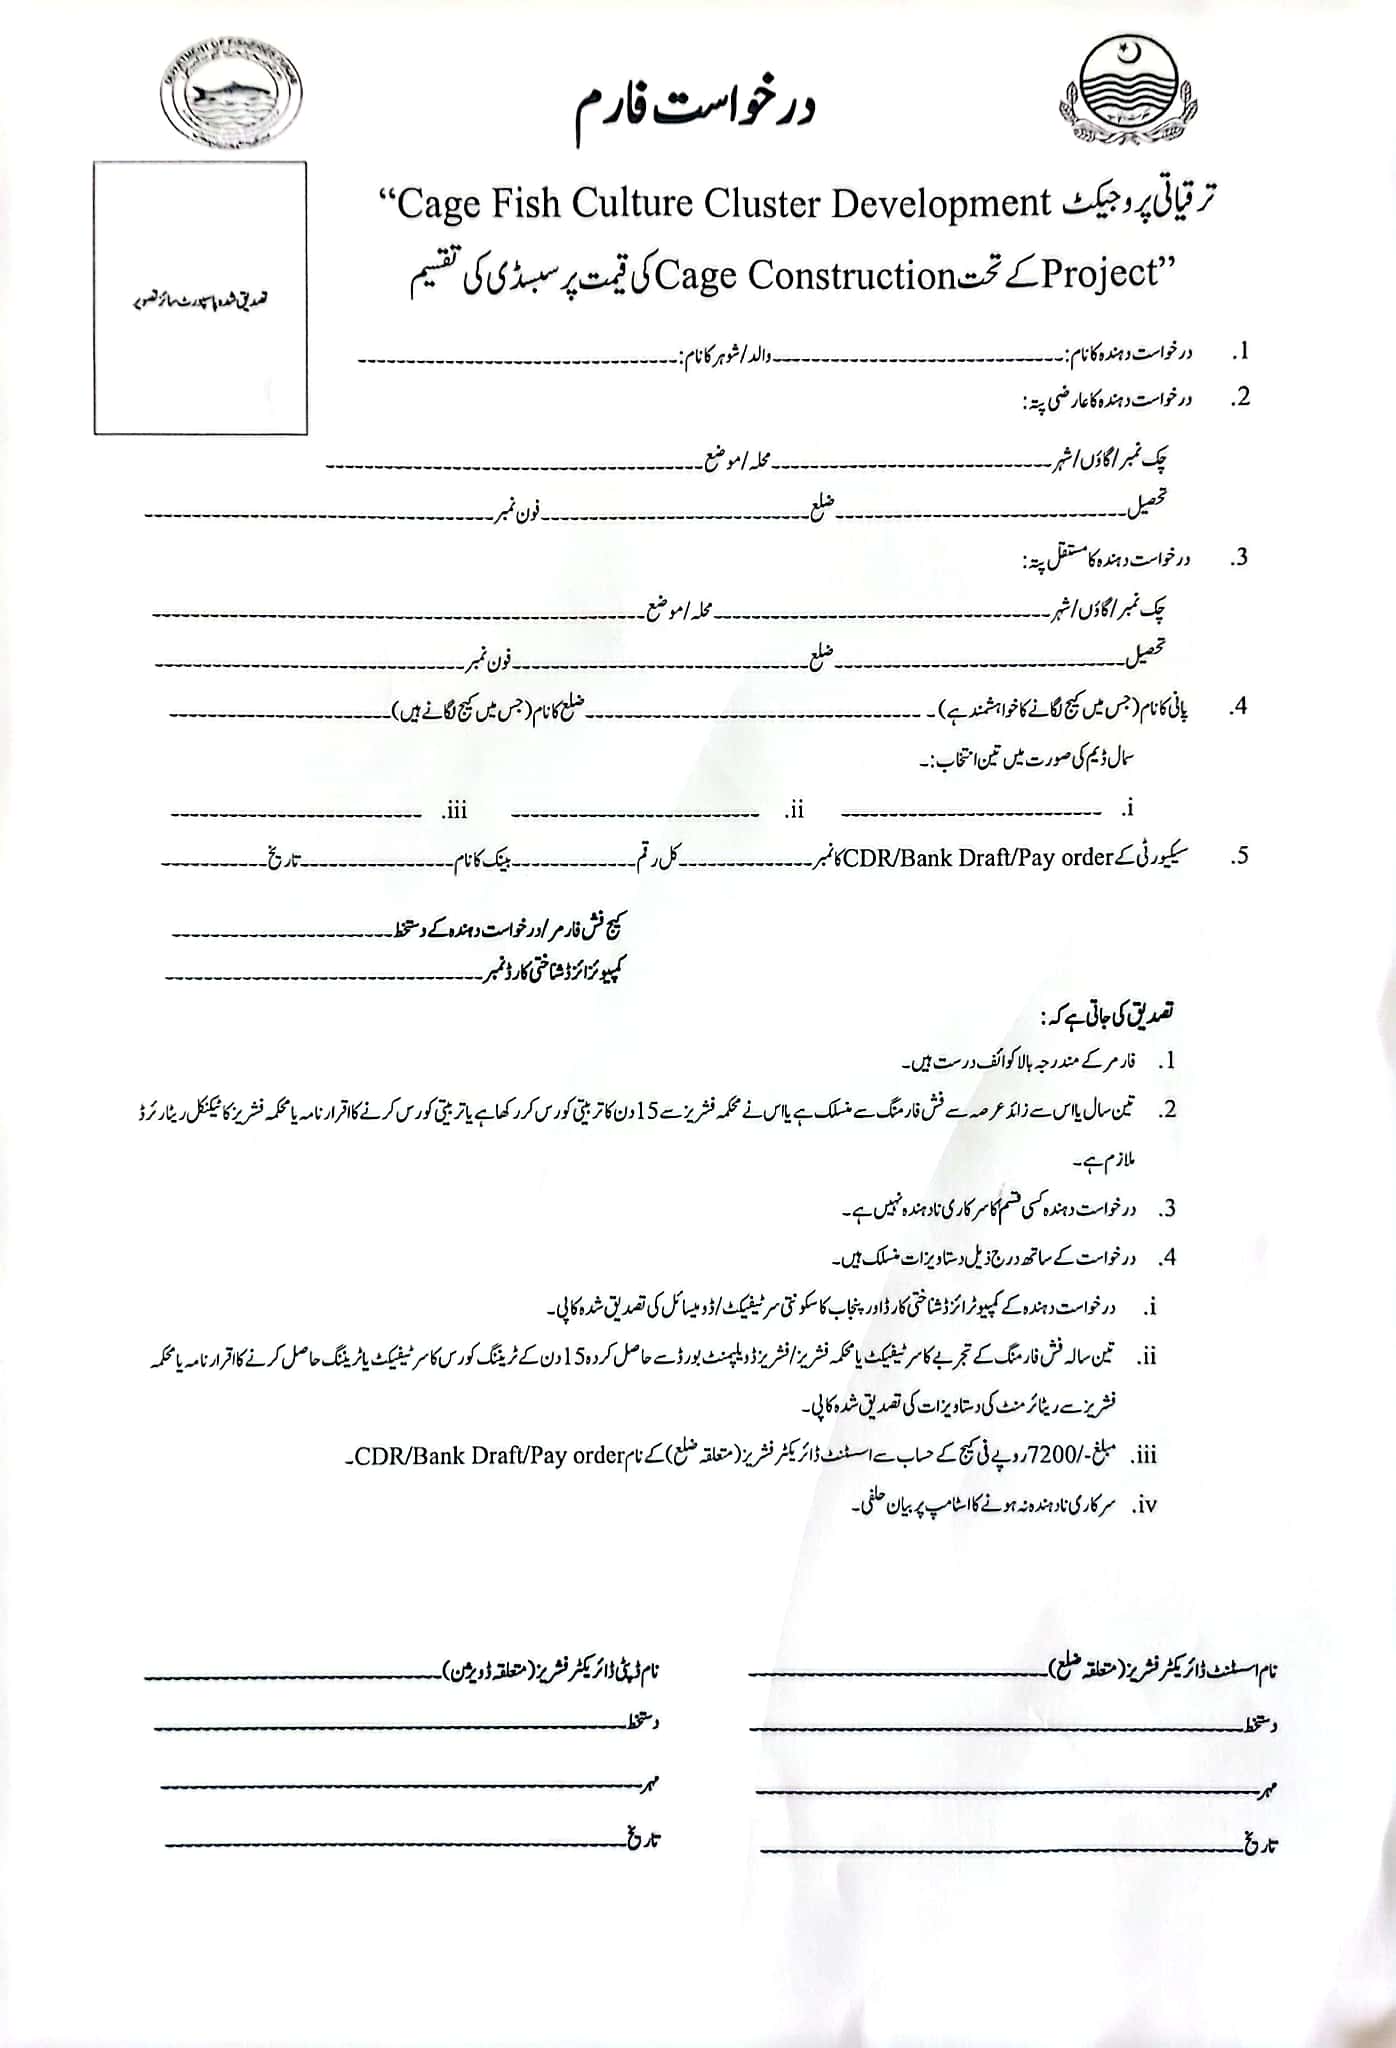 DEPARTMENT OF FISHERIES PUNJAB
درخواست فارم
ترقیاتی پروجیکٹ “Cage Fish Culture Cluster Development
Project” کے تحت Cage Construction کی قیمت پر سبسڈی کی تقسیم
تصدیق شدہ پاسپورٹ سائز تصویر
1. درخواست دہندہ کا نام:__________والد/شوہر کا نام:__________
2. درخواست دہندہ کا عارضی پتہ:
چک نمبر/گاؤں/شہر__________محلہ/موضع__________
تحصیل__________ضلع__________فون نمبر__________
3. درخواست دہندہ کا مستقل پتہ:
چک نمبر/گاؤں/شہر__________محلہ/موضع__________
تحصیل__________ضلع__________فون نمبر__________
4. پانی کا نام (جس میں کیج لگانے کا خواہشمند ہے)۔__________ضلع کا نام (جس میں کیج لگانے ہیں)__________
سمال ڈیم کی صورت میں تین انتخاب:۔
i. __________ ii. __________ iii. __________
5. سیکیورٹی کے CDR/Bank Draft/Pay order کا نمبر__________کل رقم__________بینک کا نام__________تاریخ__________
کیج فش فارمر/درخواست دہندہ کے دستخط__________
کمپیوٹرائزڈ شناختی کارڈ نمبر__________
تصدیق کی جاتی ہے کہ:
1. فارمر کے مندرجہ بالا کوائف درست ہیں۔
2. تین سال یا اس سے زائد عرصہ سے فش فارمنگ سے منسلک ہے یا اس نے محکمہ فشریز سے 15 دن کا تربیتی کورس کر رکھا ہے یا تربیتی کورس کرنے کا اقرار نامہ یا محکمہ فشریز کا ٹیکنکل ریٹائرڈ
ملازم ہے۔
3. درخواست دہندہ کسی قسم کا سرکاری نادہندہ نہیں ہے۔
4. درخواست کے ساتھ درج ذیل دستاویزات منسلک ہیں۔
i. درخواست دہندہ کے کمپیوٹرائزڈ شناختی کارڈ اور پنجاب کا سکونتی سرٹیفیکٹ/ڈومیسائل کی تصدیق شدہ کاپی۔
ii. تین سالہ فش فارمنگ کے تجربے کا سرٹیفیکٹ یا محکمہ فشریز/فشریز ڈویلپمنٹ بورڈ سے حاصل کردہ 15 دن کے ٹریننگ کورس کا سرٹیفیکٹ یا ٹریننگ حاصل کرنے کا اقرار نامہ یا محکمہ
فشریز سے ریٹائرمنٹ کی دستاویزات کی تصدیق شدہ کاپی۔
iii. مبلغ -/7200 روپے فی کیج کے حساب سے اسسٹنٹ ڈائریکٹر فشریز (متعلقہ ضلع) کے نام CDR/Bank Draft/Pay order۔
iv. سرکاری نادہندہ نہ ہونے کا اسٹامپ پر بیان حلفی۔
نام اسسٹنٹ ڈائریکٹر فشریز (متعلقہ ضلع)__________ نام ڈپٹی ڈائریکٹر فشریز (متعلقہ ڈویژن)__________
دستخط__________ دستخط__________
مہر__________ مہر__________
تاریخ__________ تاریخ__________